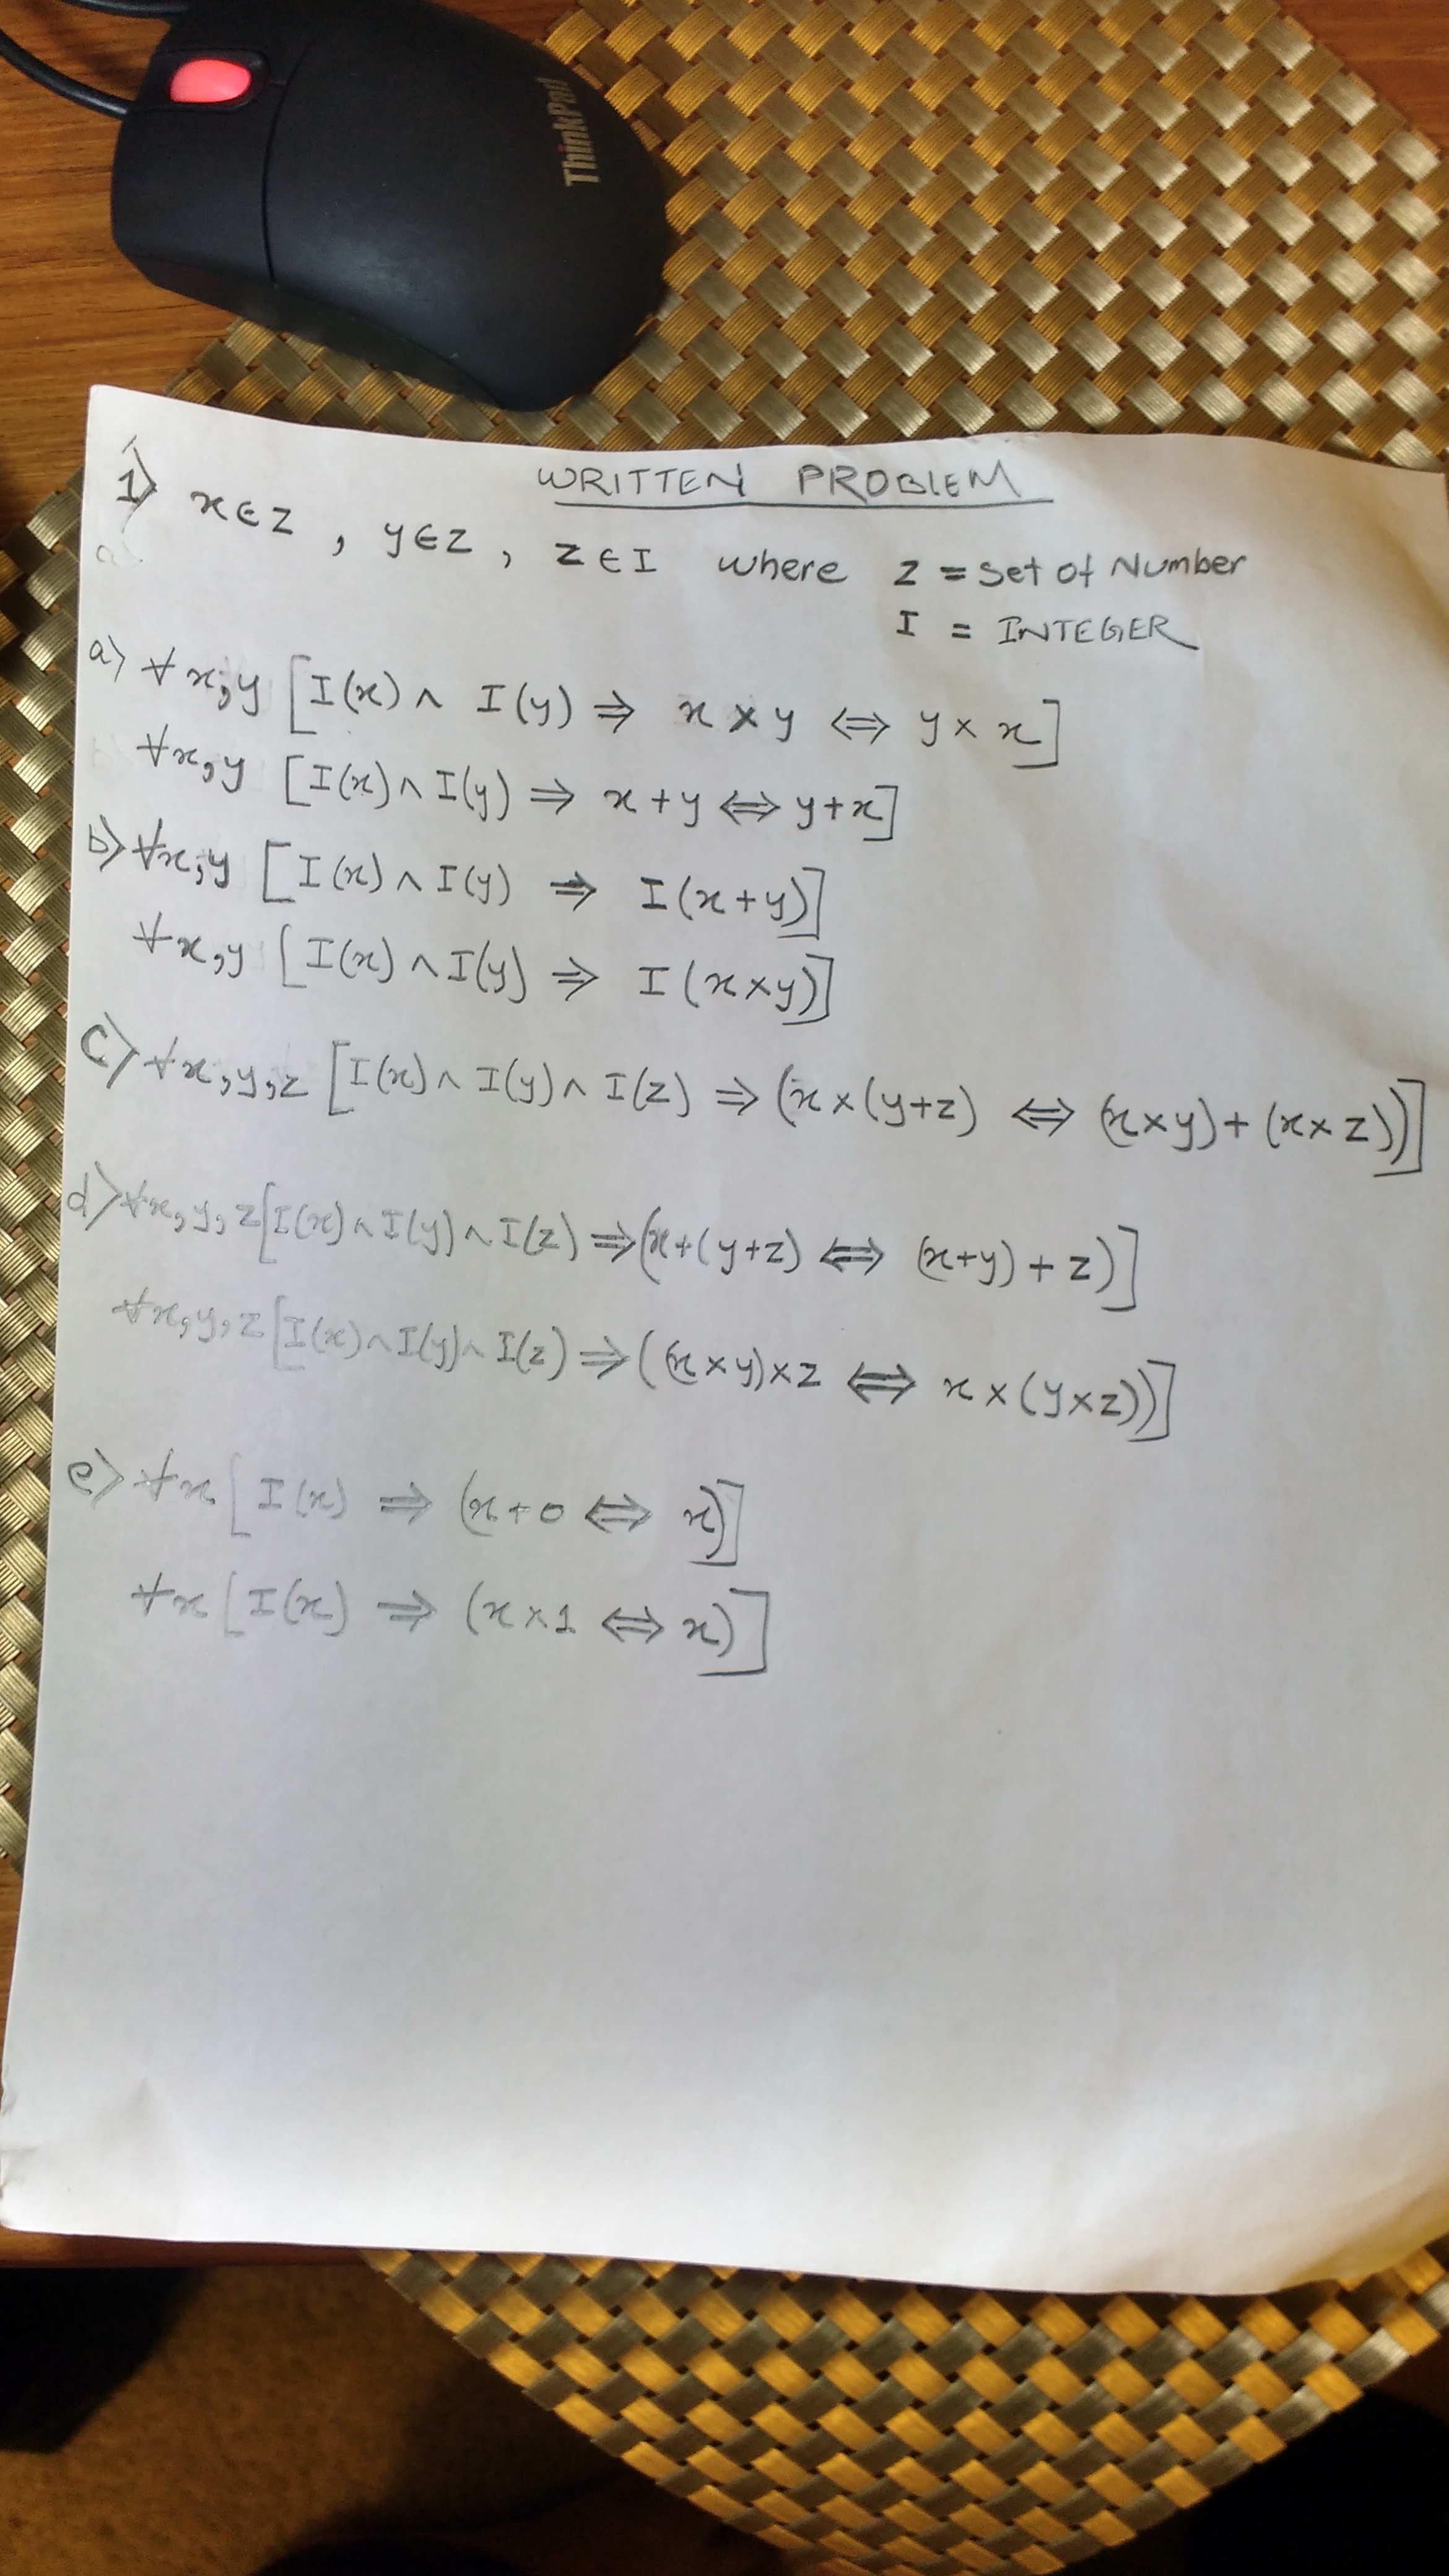 ThinkPad
WRITTEN PROBLEM
1) x∈Z , y∈Z , z∈I where Z = Set of Number
I = INTEGER
a) ∀x,y [I(x) ∧ I(y) ⇒ x × y ⇔ y × x]
∀x,y [I(x) ∧ I(y) ⇒ x + y ⇔ y + x]
b) ∀x,y [I(x) ∧ I(y) ⇒ I(x+y)]
∀x,y [I(x) ∧ I(y) ⇒ I(x×y)]
c) ∀x,y,z [I(x) ∧ I(y) ∧ I(z) ⇒ (x×(y+z) ⇔ (x×y)+(x×z))]
d) ∀x,y,z [I(x) ∧ I(y) ∧ I(z) ⇒ (x+(y+z) ⇔ (x+y)+z)]
∀x,y,z [I(x) ∧ I(y) ∧ I(z) ⇒ ((x×y)×z ⇔ x×(y×z))]
e) ∀x [I(x) ⇒ (x+0 ⇔ x)]
∀x [I(x) ⇒ (x×1 ⇔ x)]